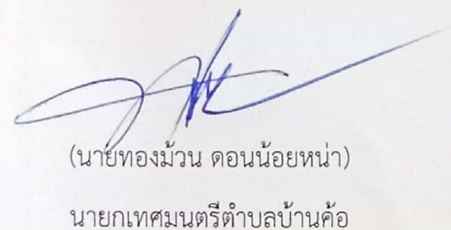 (นายทองม้วน ดอนน้อยหน่า)
นายกเทศมนตรีตำบลบ้านค้อ